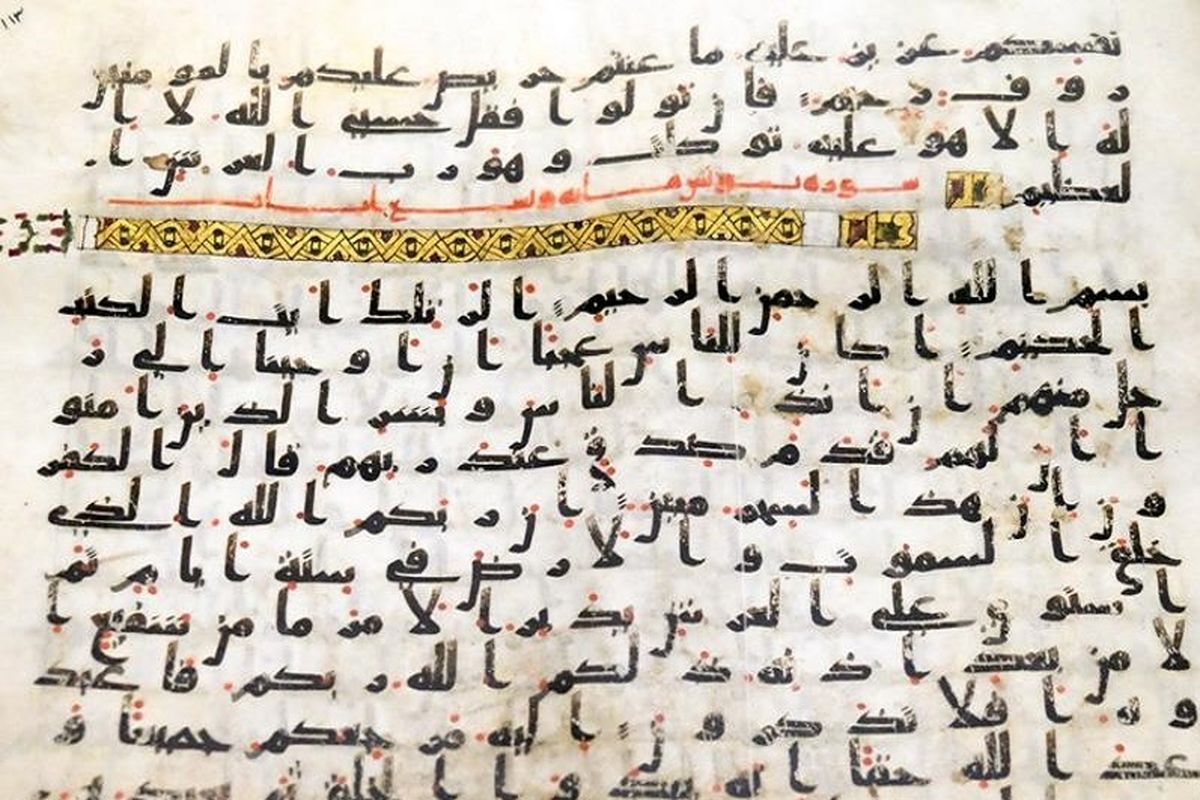 ١١٣
نفسكم عزيز عليه ما عنتم حريص عليكم بالمومنين
روف رحيم فان تولوا فقل حسبي الله لا ا
له الا هو عليه توكلت وهو رب العرش ا
لعظيم
سورة يونس مائه وتسع ايات
بسم الله الرحمن الرحيم الر تلك ايت الكتب
الحكيم اكان للناس عجبا ان اوحينا الى ر
جل منهم ان انذر الناس وبشر الذين امنو
ا ان لهم قدم صدق عند ربهم قال الكفر
ون ان هذا لسحر مبين ان ربكم الله الذي
خلق السموت والارض في ستة ايام ثم
استوى على العرش يدبر الامر ما من شفيع ا
لا من بعد اذنه ذلكم الله ربكم فاعبد
وه افلا تذكرون اليه مرجعكم جميعا و
عد الله حقا انه